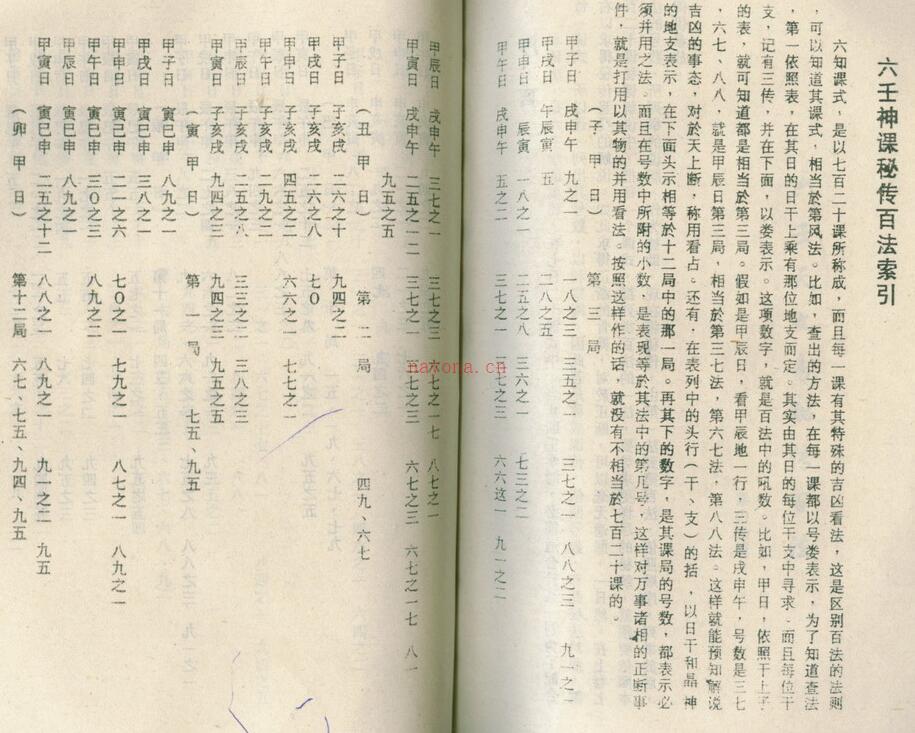 六壬神课秘传百法索引
六知课式，是以七百二十课所称成，而且每一课有其特殊的吉凶看法，这是区别百法的法则
，可以知道其课式，相当於第风法。比如，查出的方法，在每一课都以号娄表示，为了知道查法
，第一依照表，在其日的日干上乘有那位地支而定。其实由其日的每位干支中寻求。而且每位干
支，记有三传，并在下面，以娄表示。这项数字，就是百法中的吼数。比如，甲日，依照于上子
的表，就可知道都是相当於第三局。假如是甲辰日，看甲辰地一行，三传是戌申午，号数是三七
，六七、八八，就是甲辰日第三局，相当於第三七法，第六七法，第八八法。这样就能预知解说
吉凶的事态，对於天上断，称用看占。还有，在表列中的头行（干、支）的括，以日干和晶神
的地支表示，在下面头示相等於十二局中的那一局。再其下的数字，是其课局的号数，都表示必
须并用之法。而且在号数中所附的小数，是表现等於其法中的第几号，这样对万事诸相的正断事
件，就是打用以其物的并用看法。按照这样作的话，就没有不相当於七百二十课的。
（子 甲 日） 第 三 局
甲子日 戌申午 九之一 一八之三 三五之一 三七之一 八八之三 九一之一
甲戌日 午辰寅 五 二八之五
甲申日 辰寅 一八之一 二五之八 三六之一 七三之二
甲午日 戌申午 五之二 三七之一 三七之三 六六这一 九一之二
甲辰日 戌申午 三七之一 三七之三 六七之一七 八七之一
甲寅日 戌申午 二五之一二 三七之一 三七之三 六七之三 六七之一七 八一
九五之二
（丑 甲 日） 第 二 局 四九、六七
甲子日 子亥戌 二六之十 九四之二
甲戌日 子亥戌 二六之八 七〇
甲申日 子亥戌 四五之二 六六之一 七七之一
甲午日 子亥戌 二九之二
甲辰日 子亥戌 二五之八 三三之二 三八之三
甲寅日 子亥戌 九四之三 九四之三 九五之五
（寅 甲 日） 第 一 局 七五、九五
甲子日 寅巳申 八九之一
甲戌日 寅巳申 三八之一
甲申日 寅巳申 二一之六 七〇之一 七九之一 八七之一 八九之一
甲午日 寅巳申 三〇之三 八九之二
甲辰日 寅巳申 八九之一
甲寅日 寅巳申 二五之十二 八八之一 八九之一 九一之二 九五
（卯 甲 日） 第十二局 六七、七五、九四、九五
navona.cn